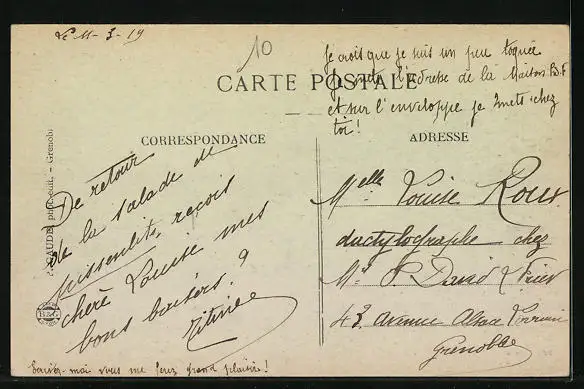 Le 11-3-19
10
Je crois que je suis un peu toquée
Je mets l'adresse de la Maison B.F
et sur l'enveloppe je mets chez
toi!
CARTE POSTALE
CORRESPONDANCE
ADRESSE
De retour
de la salade de
pissenlits, reçois
chère Louise mes
bons baisers.
Titine
Ecrivez-moi vous me ferez grand plaisir!
Melle Louise Roux
dactylographe chez
Mr P. David &
43 Avenue Alsace Lorraine
Grenoble
phot.-édit. - Grenoble
B&G